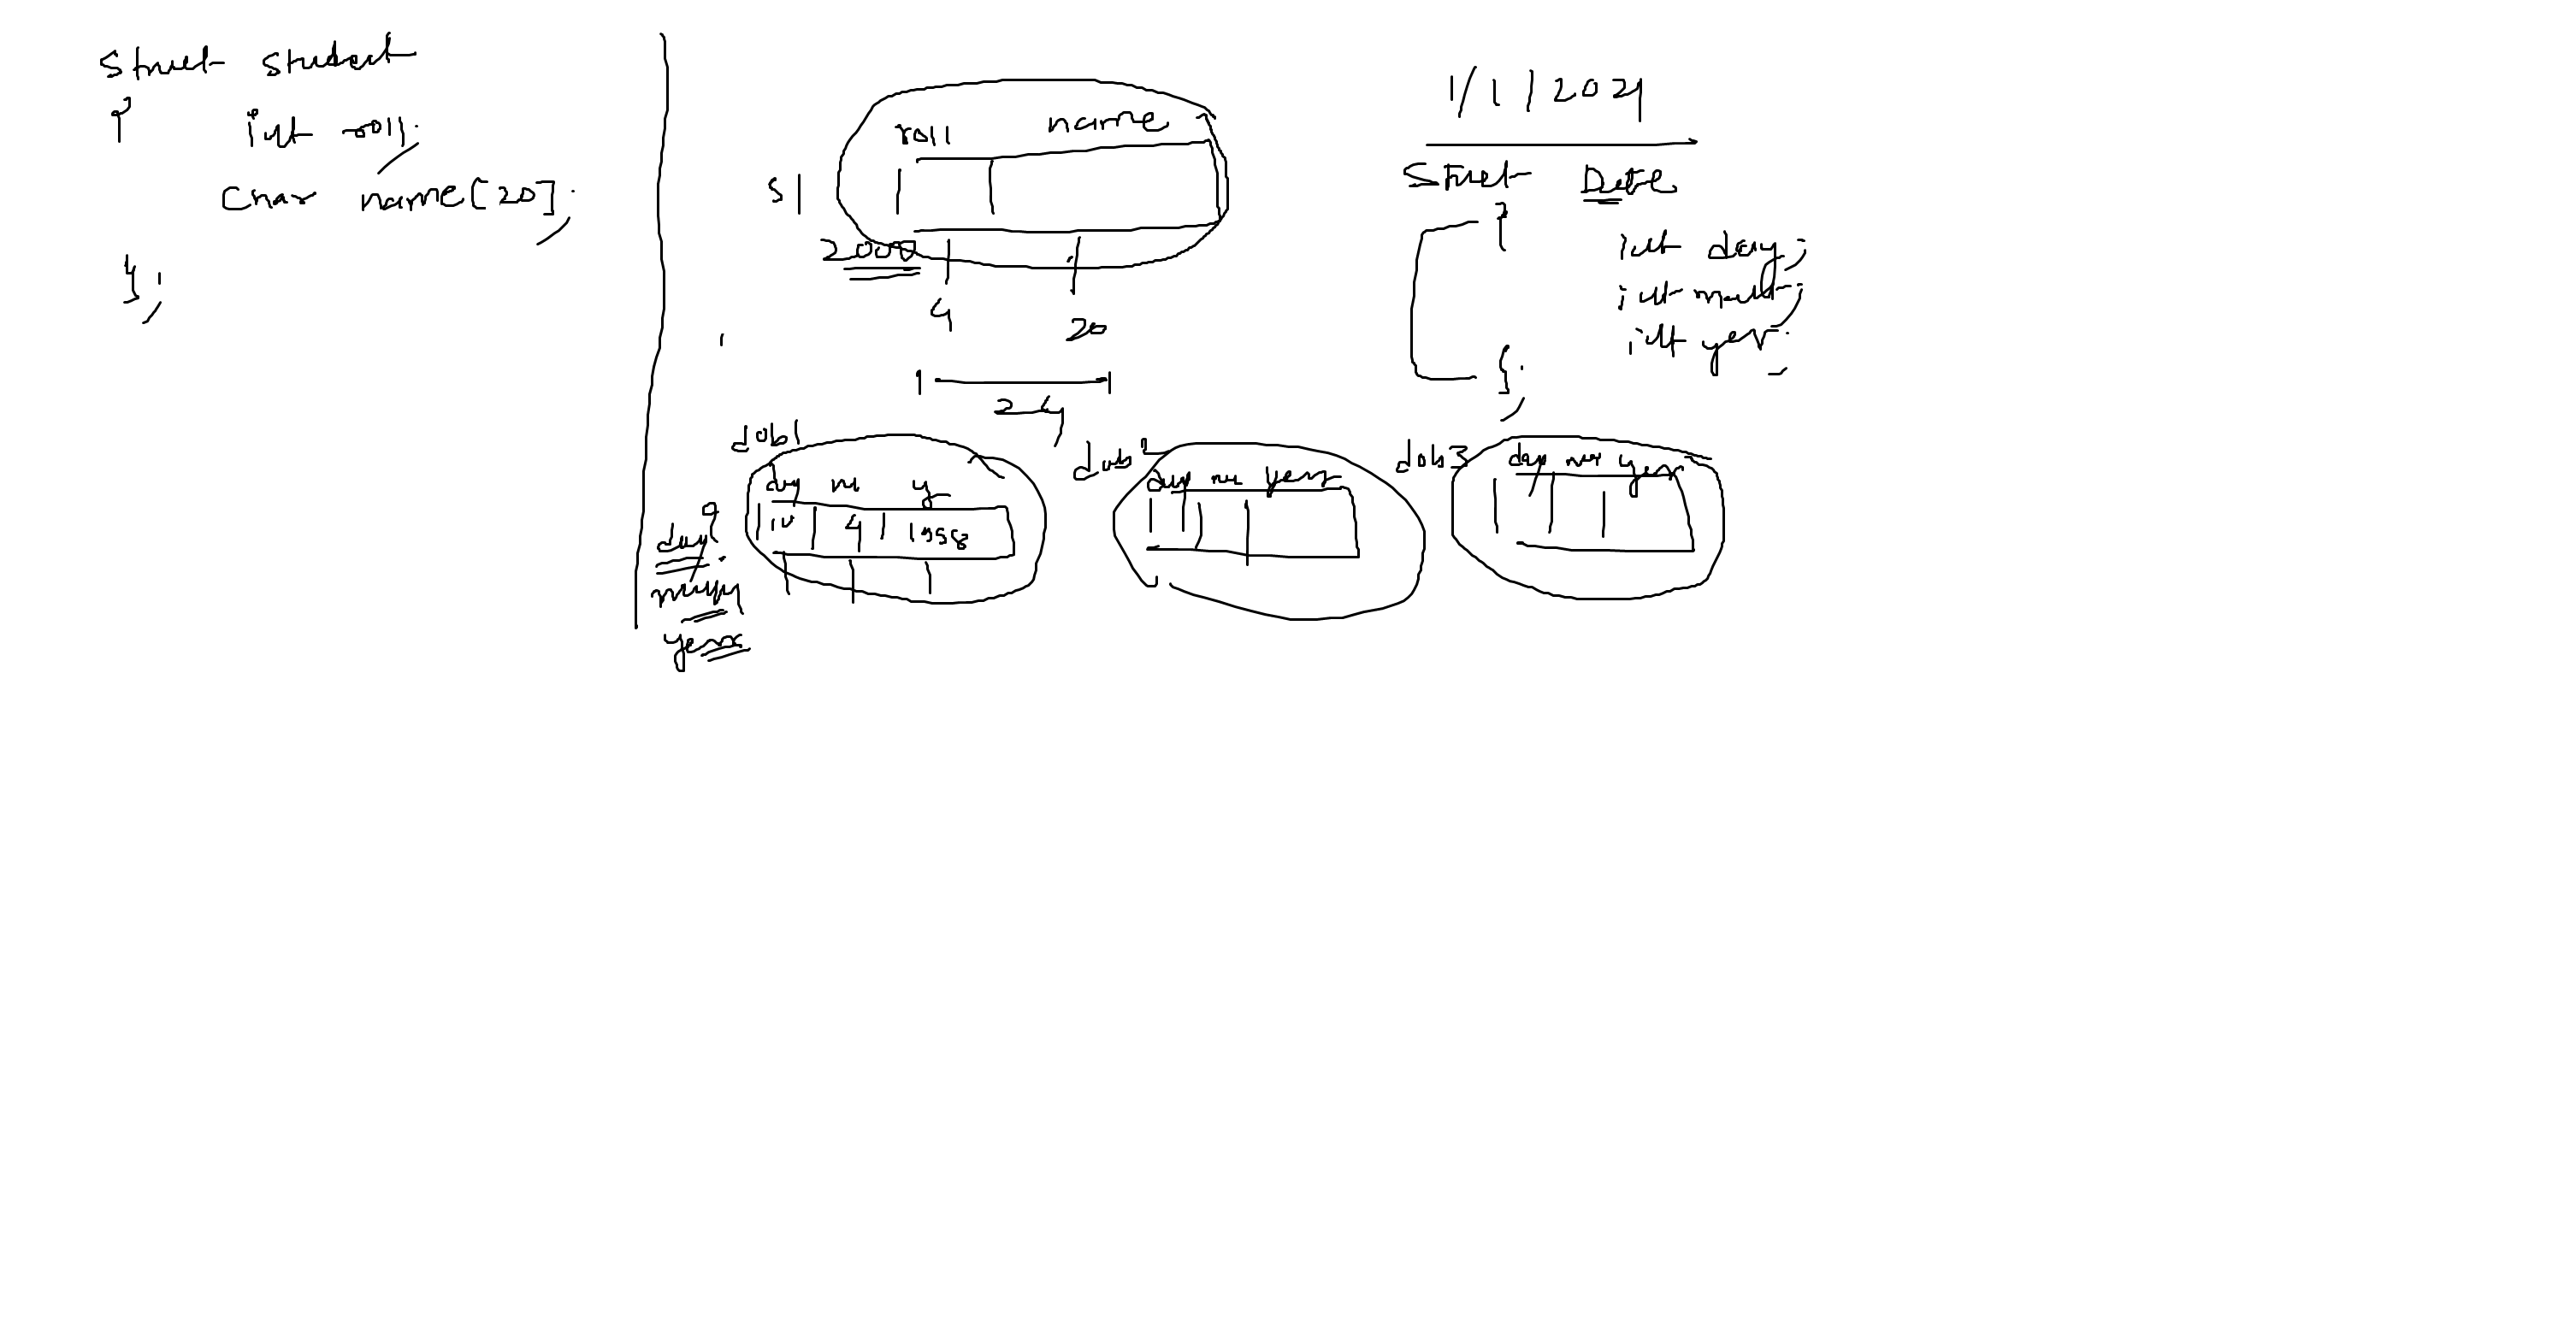 struct student
{
int roll;
char name[20];
};
roll name
s1
2000
4 20
24
1/1/2024
struct Date
{
int day;
int month;
int year;
};
dob1
day m y
10 4 1998
day
year
dob2
day m year
dob3
day m year